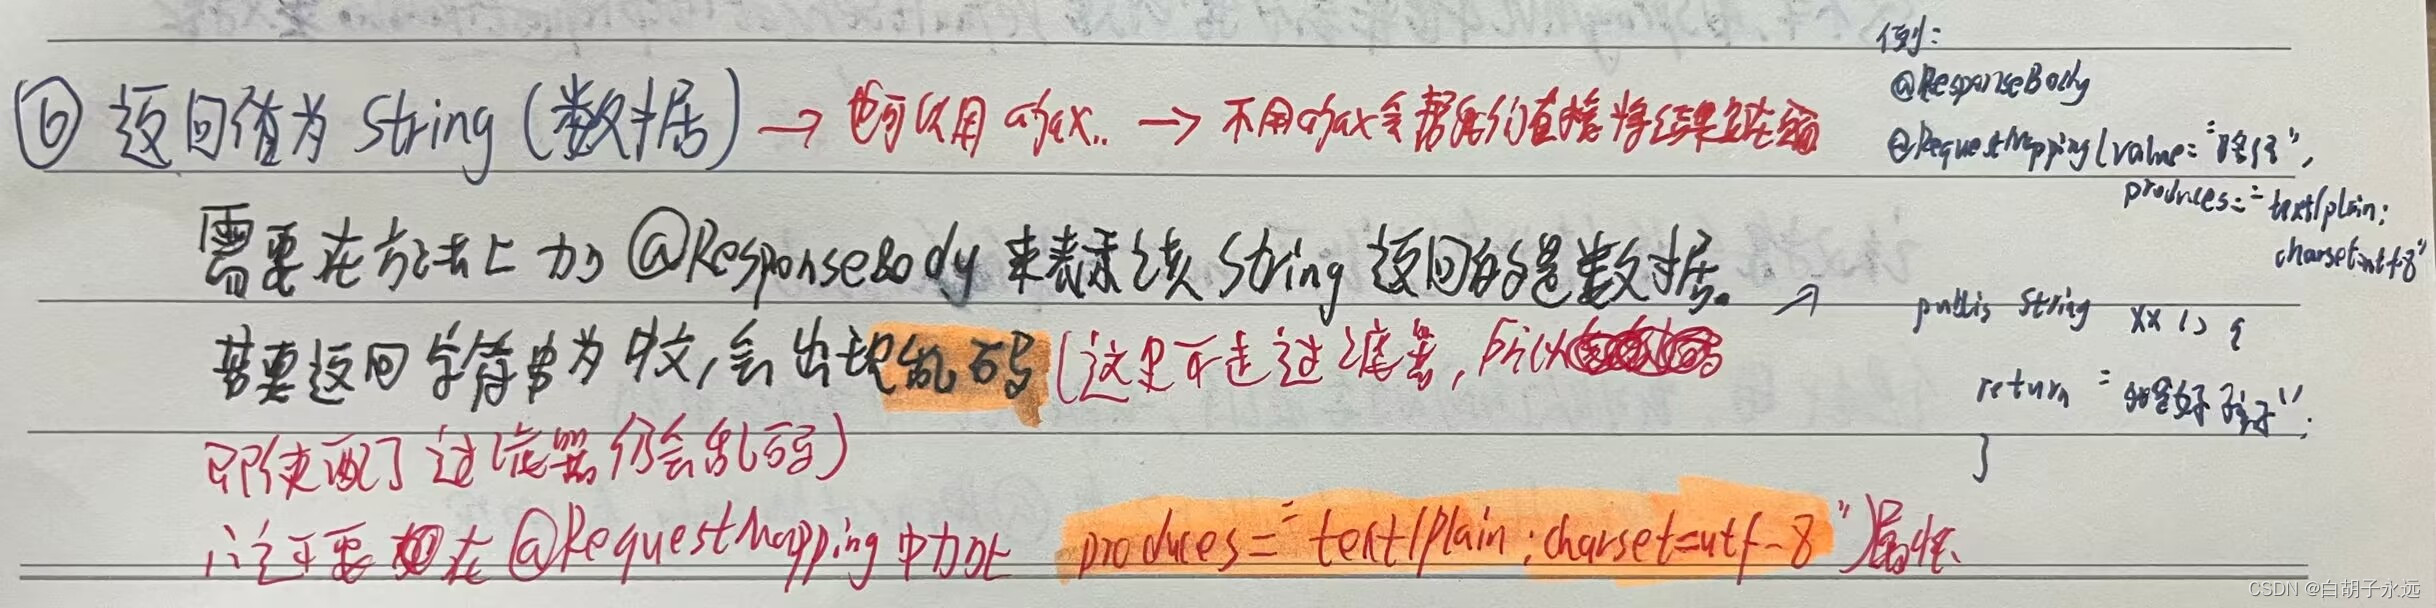 ⑥ 返回值为 String (数据) → 也可以用 ajax.. → 不用ajax会帮我们直接将结果显在页
需要在方法上加 @ResponseBody 来表示该 String 返回的是数据。
若要返回字符串为中文,会出现乱码(这里不走过滤器,所以
即使配了过滤器仍会乱码)
需要在 @RequestMapping 中加上 produces="text/plain;charset=utf-8"属性、
例:
@ResponseBody
@RequestMapping(value="路径",
produces="text/plain;
charset=utf-8"
public String xx() {
return "好孩子";
}
CSDN @白胡子永远